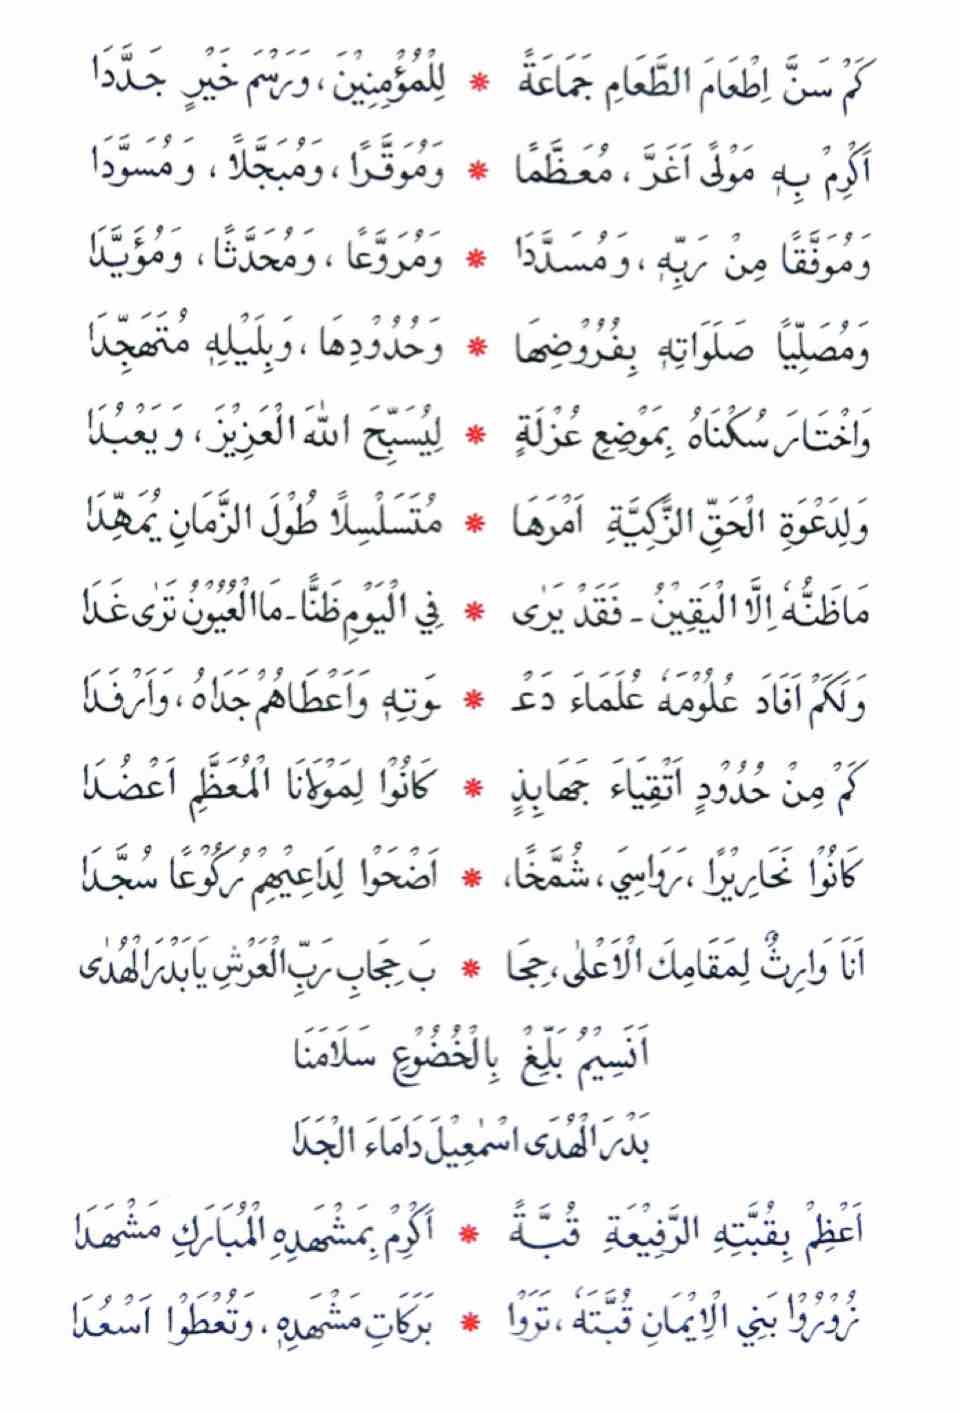 كَمْ سَنَّ اِطْعَامَ الطَّعَامِ جَمَاعَةً * لِلْمُؤْمِنِيْنَ، وَرَسْمَ خَيْرٍ جَدَّدَا
اَكْرِمْ بِهٖ مَوْلًى اَغَرَّ، مُعَظَّمًا * وَمُوَقَّرًا، وَمُبَجَّلًا، وَمُسَوَّدَا
وَمُوَفَّقًا مِنْ رَبِّهٖ، وَمُسَدَّدَا * وَمُرَوَّعًا، وَمُحَدَّثًا، وَمُؤَيَّدَا
وَمُصَلِّيًا صَلَوَاتِهٖ بِفُرُوْضِهَا * وَحُدُوْدِهَا، وَبِلَيْلِهٖ مُتَهَجِّدَا
وَاخْتَارَ سُكْنَاهُ بِمَوْضِعِ عُزْلَةٍ * لِيُسَبِّحَ اللهَ الْعَزِيْزَ، وَيَعْبُدَا
وَلِدَعْوَةِ الْحَقِّ الزَّكِيَّةِ اَمْرَهَا * مُتَسَلْسِلًا طُوْلَ الزَّمَانِ يُمَهِّدَا
مَاظَنُّهٗ اِلَّا الْيَقِيْنُ ـ فَقَدْ يَرٰى * فِي الْيَوْمِ ظَنًّا ـ مَا الْعُيُوْنُ تَرٰى غَدَا
وَلَكَمْ اَفَادَ عُلُوْمَهٗ عُلَمَاءَ دَعْـ * ـوَتِهٖ وَاَعْطَاهُمْ جَدَاهُ، وَاَرْفَدَا
كَمْ مِنْ حُدُوْدٍ اَتْقِيَاءَ جَهَابِذٍ * كَانُوْا لِمَوْلَانَا الْمُعَظَّمِ اَعْضُدَا
كَانُوْا نَحَارِيْرًا، رَوَاسِيَ، شُمَّخًا، * اَضْحَوْا لِدَاعِيْهِمْ رُكُوْعًا سُجَّدَا
اَنَا وَارِثٌ لِمَقَامِكَ الْاَعْلٰى، حِجَا * بَ حِجَابِ رَبِّ الْعَرْشِ يَابَدْرَ الْهُدٰى
اَنَسِيْمُ بَلِّغْ بِالْخُضُوْعِ سَلَامَنَا
بَدْرَ الْهُدَى اسْمٰعِيْلَ دَامَاءَ الْجَدَا
اَعْظِمْ بِقُبَّتِهِ الرَّفِيْعَةِ قُبَّةً * اَكْرِمْ بِمَشْهَدِهِ الْمُبَارَكِ مَشْهَدَا
زُوْرُوْا بَنِي الْاِيْمَانِ قُبَّتَهٗ، تَرَوْا * بَرَكَاتِ مَشْهَدِهٖ، وَتُعْطَوْا اَسْعُدَا